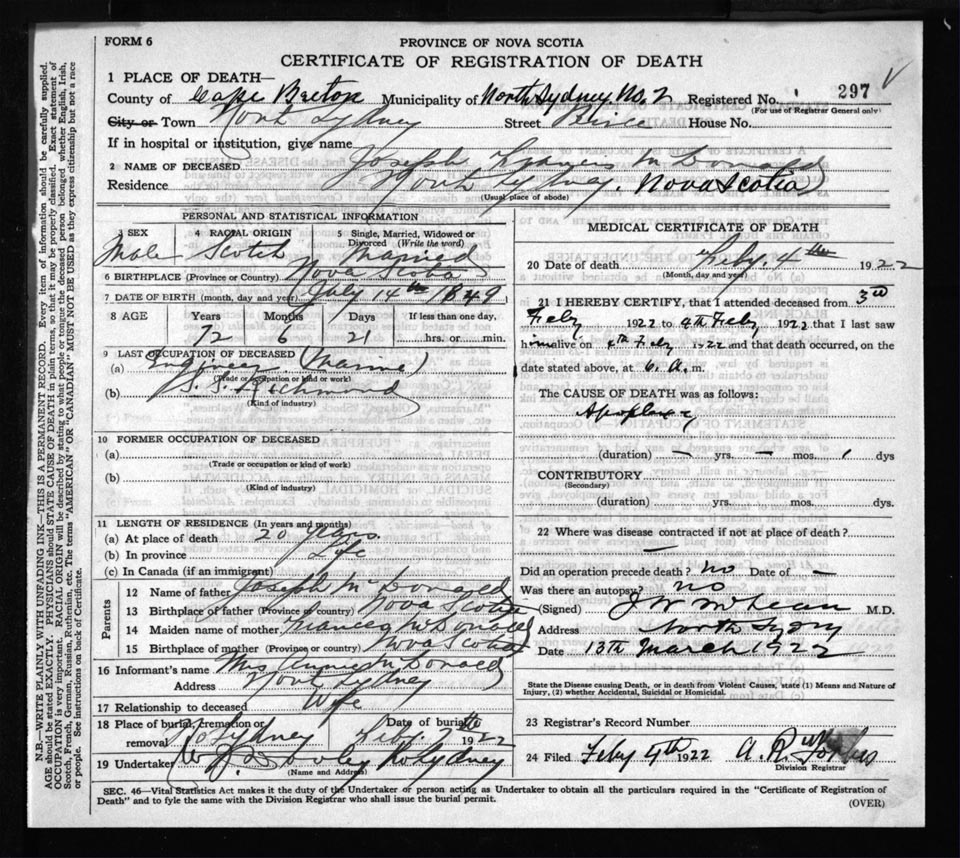 FORM 6
PROVINCE OF NOVA SCOTIA
CERTIFICATE OF REGISTRATION OF DEATH
1 PLACE OF DEATH—
297
County of Cape Breton Municipality of North Sydney. No. 2 Registered No.
(For use of Registrar General only)
City or Town North Sydney Street Peirce House No.
If in hospital or institution, give name
2 NAME OF DECEASED Joseph Francis McDonald
Residence North Sydney. Nova Scotia
(Usual place of abode)
PERSONAL AND STATISTICAL INFORMATION
3 SEX 4 RACIAL ORIGIN 5 Single, Married, Widowed or Divorced (Write the word)
Male Scotch Married
6 BIRTHPLACE (Province or Country) Nova Scotia
7 DATE OF BIRTH (month, day and year) July 14th 1849
8 AGE Years Months Days If less than one day,
72 6 21 hrs. or min.
9 LAST OCCUPATION OF DECEASED
(a) Engineer (Marine)
(Trade or occupation or kind of work)
(b) S. S. Richmond
(Kind of industry)
10 FORMER OCCUPATION OF DECEASED
(a)
(Trade or occupation or kind of work)
(b)
(Kind of industry)
11 LENGTH OF RESIDENCE (In years and months)
(a) At place of death 20 Years
(b) In province Life
(c) In Canada (if an immigrant)
Parents
12 Name of father Joseph McDonald
13 Birthplace of father (Province or country) Nova Scotia
14 Maiden name of mother Frances McDonald
15 Birthplace of mother (Province or country) Nova Scotia
16 Informant's name Mrs Annie McDonald
Address North Sydney
17 Relationship to deceased Wife
18 Place of burial, cremation or removal No Sydney Date of burial Feby. 7th 1922
19 Undertaker Dooley No Sydney
(Name and Address)
MEDICAL CERTIFICATE OF DEATH
20 Date of death Feby. 4th 1922
(Month, day and year)
21 I HEREBY CERTIFY, that I attended deceased from 3rd
Feby 1922 to 4th Feby 1922 that I last saw
him alive on 4th Feby 1922 and that death occurred, on the
date stated above, at 6. A. m.
The CAUSE OF DEATH was as follows:
Apoplexy
(duration) — yrs. — mos. 1 dys
CONTRIBUTORY
(Secondary)
(duration) yrs. mos. dys.
22 Where was disease contracted if not at place of death?
—
Did an operation precede death? no Date of —
Was there an autopsy? no
(Signed) J W McLean M.D.
Address North Sydney
Date 13th March 1922
State the Disease causing Death, or in death from Violent Causes, state (1) Means and Nature of
Injury, (2) whether Accidental, Suicidal or Homicidal.
23 Registrar's Record Number
24 Filed Feby 4th 1922 A. R. Forbes
Division Registrar
SEC. 46—Vital Statistics Act makes it the duty of the Undertaker or person acting as Undertaker to obtain all the particulars required in the "Certificate of Registration of
Death" and to fyle the same with the Division Registrar who shall issue the burial permit.
(OVER)
N.B.—WRITE PLAINLY WITH UNFADING INK—THIS IS A PERMANENT RECORD. Every item of information should be carefully supplied.
AGE should be stated EXACTLY. PHYSICIANS should STATE CAUSE OF DEATH in plain terms, so that it may be properly classified. Exact statement of
OCCUPATION is very important. RACIAL ORIGIN will be described by stating to what people or tongue the deceased person belonged whether English, Irish,
Scotch, French, German, Russian, Ruthenian, etc. The terms "AMERICAN" OR "CANADIAN" MUST NOT BE USED as they express citizenship but not a race
or people. See instructions on back of Certificate.